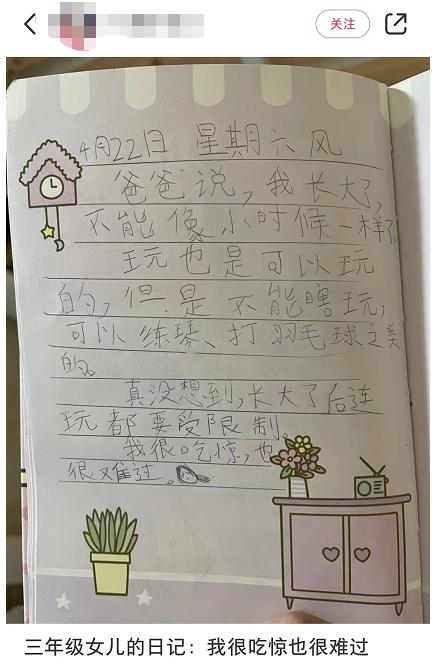 关注
4月22日 星期六 风
爸爸说,我长大了,
不能像小时候一样了。
玩也是可以玩
的,但是不能瞎玩,
可以练琴、打羽毛球之类
的。
真没想到,长大了后连
玩都要受限制。
我很吃惊,也
很难过。
三年级女儿的日记：我很吃惊也很难过